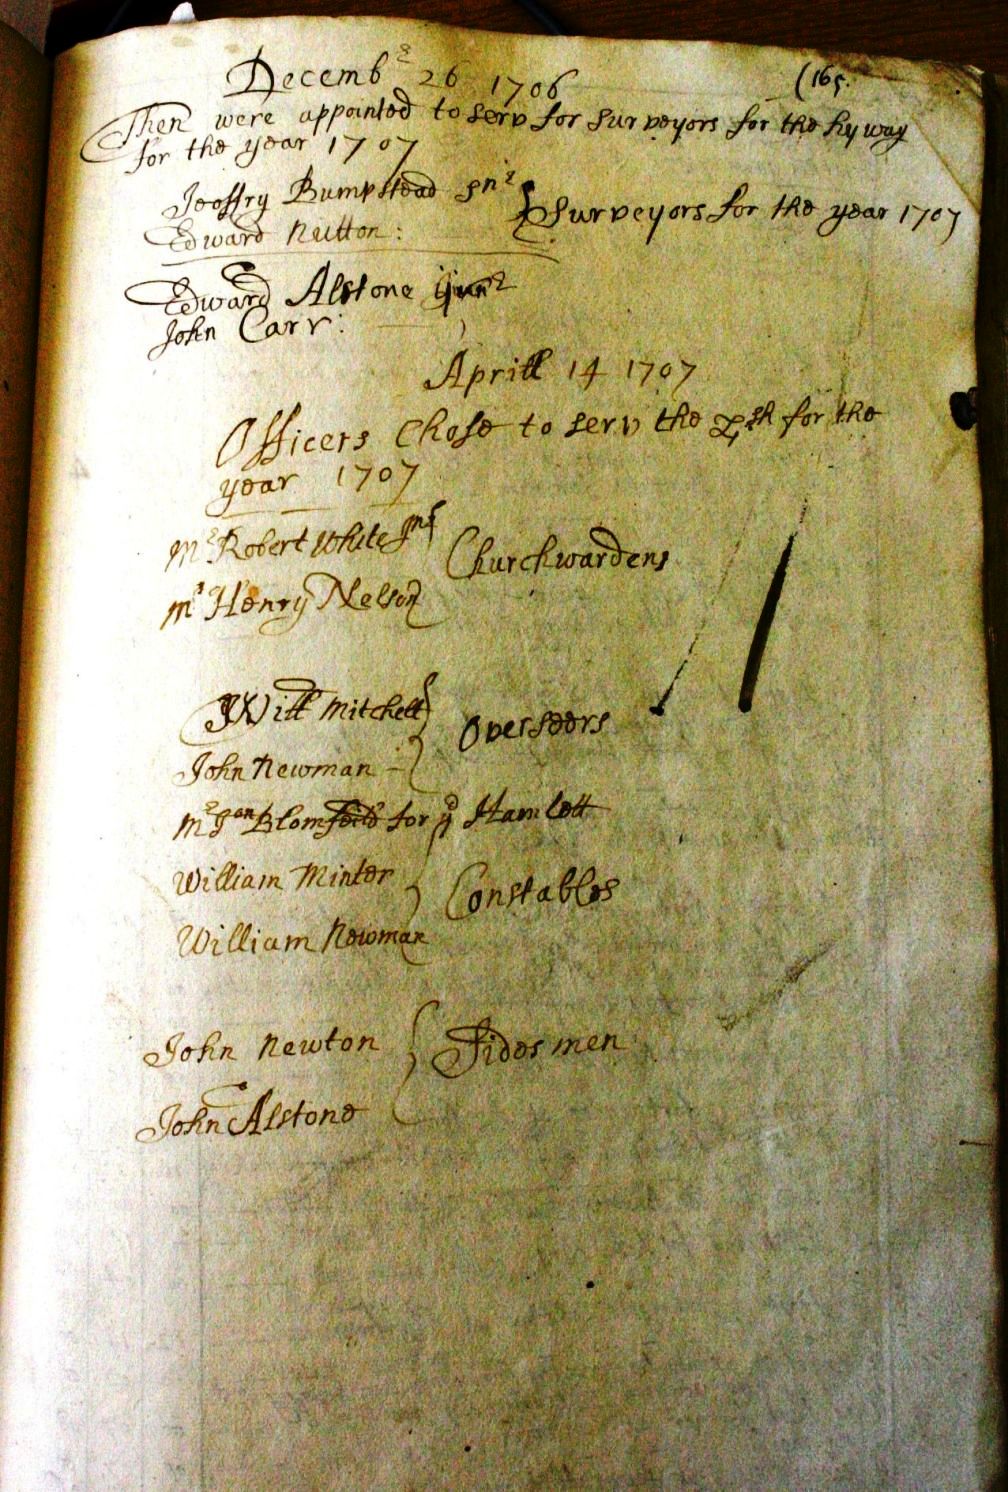 Decemb^r 26 1706 (165.
Then were appointed to serv for surveyors for the hy way
for the year 1707
Jeoffry Bumpstead sn^r
Surveyors for the year 1707
Edward Nutton:
Edward Alstone Jun^r
John Carr:
Aprill 14 1707
Officers Chose to serv the psh for the
year 1707
M^r Robert White
Churchwardens
M^r Henry Nelson
Will Mitchell
Overseers
John Newman
M^r Jon Blomfeild for y^e Hamlett
William Minter
Constables
William Newman
John Newton Sides men
John Alstone